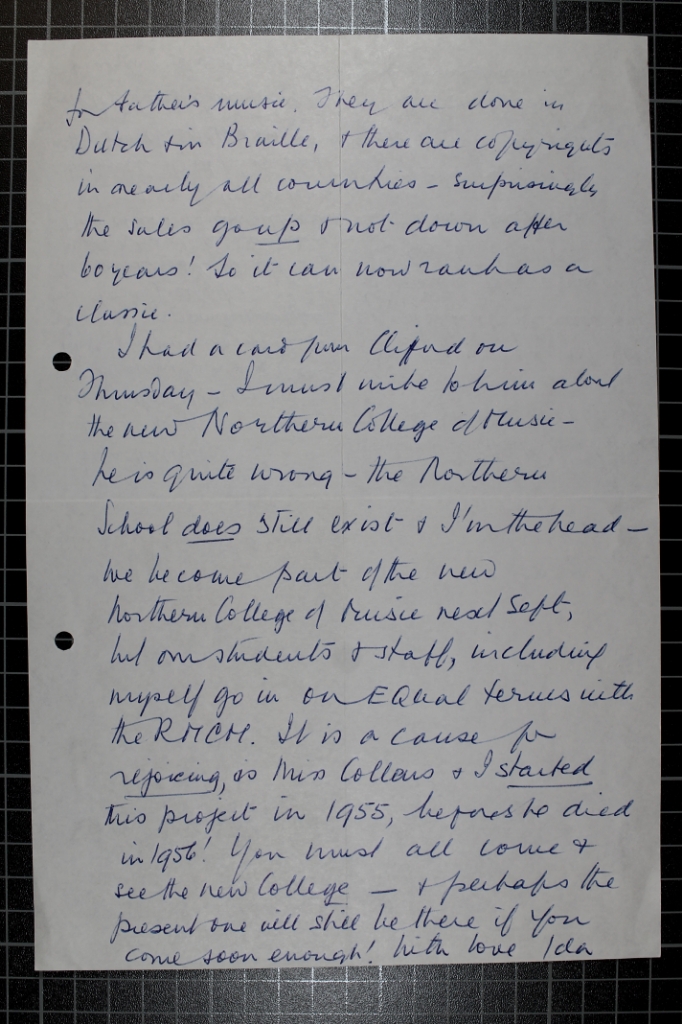 for Father's music. They are done in
Dutch & in Braille, & there are copyrights
in nearly all countries – surprisingly
the sales go up & not down after
60 years! So it can now rank as a
classic.
I had a card from Clifford on
Thursday – I must write to him about
the new Northern College of Music –
he is quite wrong – the Northern
School does still exist & I'm the head –
we become part of the new
Northern College of Music next Sept,
but our students & staff, including
myself go in on EQual terms with
the RMCM. It is a cause for
rejoicing, as Miss Collens & I started
this project in 1955, before she died
in 1956! You must all come &
see the new College – & perhaps the
present one will still be there if you
come soon enough! With love Ida